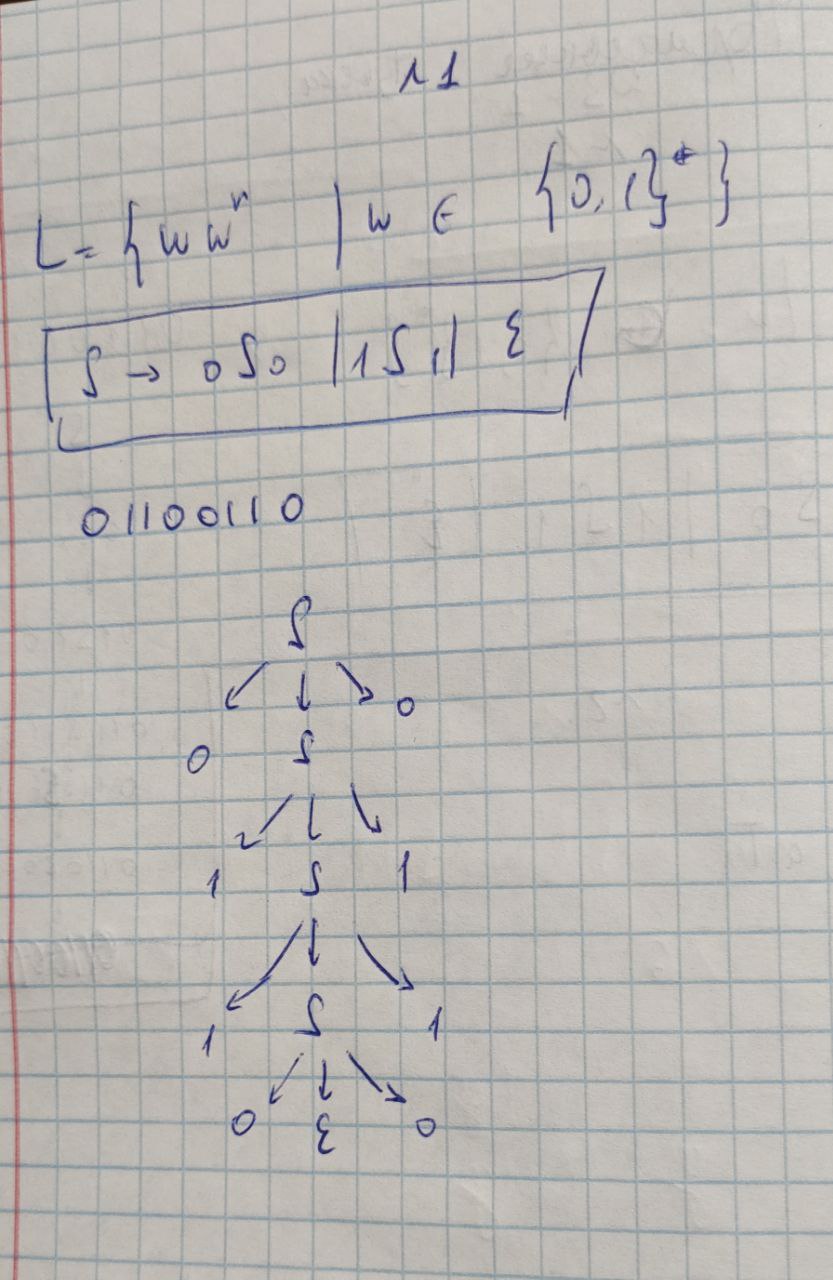 №1
L = { w w^r | w ∈ {0, 1}* }
S → 0S0 | 1S1 | ε
01100110
S
0 S 0
1 S 1
1 S 1
0 ε 0